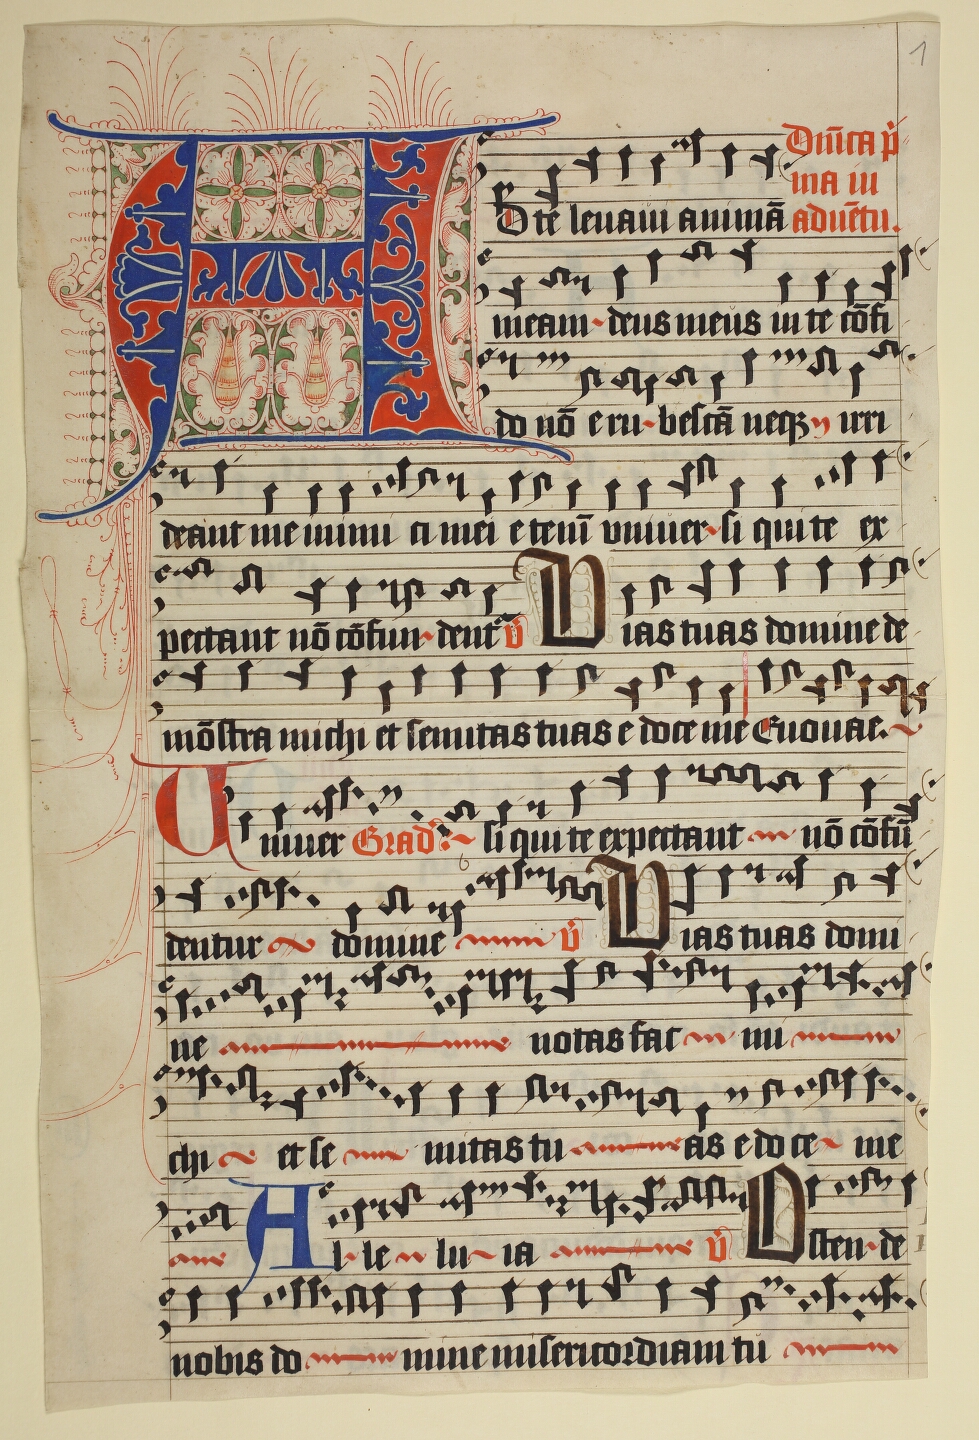 1
Dn̄ica p̄
ma in
aduētu.
A D te leuaui animā
meam deus meus in te cōfi
do nō e ru besca̅ neqꝫ irri
deant me inimi ci mei e teni̅ vniuer si qui te ex
pectant nō cōfun dent᷑ v̄ Vias tuas domine de
mōstra michi et semitas tuas e doce me Euouae.
Uniuer Grad᷑ si qui te expectant nō cōfū
dentur domine v̄ Vias tuas domi
ne notas fac mi
chi et se mitas tu as e do ce me
Al le lu ia v̄ Osten de
nobis do mine misericordiam tu